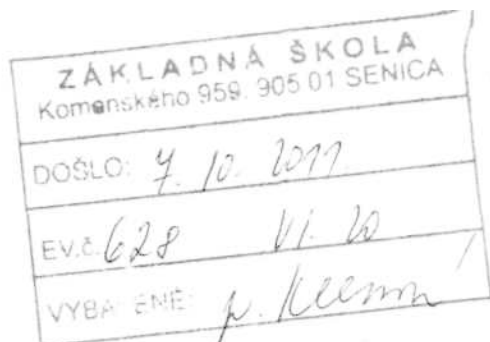 ZÁKLADNÁ ŠKOLA
Komenského 959, 905 01 SENICA
DOŠLO: 7. 10. 2011
EV.č. 628 VI. 20
VYBA ENÉ: p.